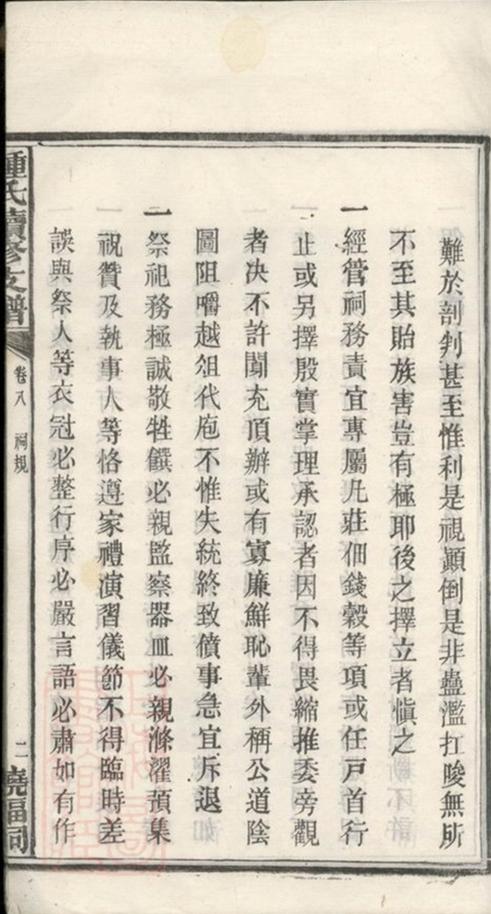 難於剖判甚至惟利是視顚倒是非蠱濫扛唆無所
不至其貽族害豈有極耶後之擇立者愼之
一經管祠務責宜專屬凡莊佃錢穀等項或任戶首行
止或另擇殷實掌理承認者因不得畏縮推委旁觀
者决不許鬮充頂辦或有寡廉鮮恥輩外稱公道陰
圖阻嚼越俎代庖不惟失統終致僨事急宜斥退
一祭祀務極誠敬牲饌必親監察器皿必親滌濯預集
祝贊及執事人等恪遵家禮演習儀節不得臨時差
誤與祭人等衣冠必整行序必嚴言語必肅如有作
氏續修支譜
卷八 祠規
二
堯福祠